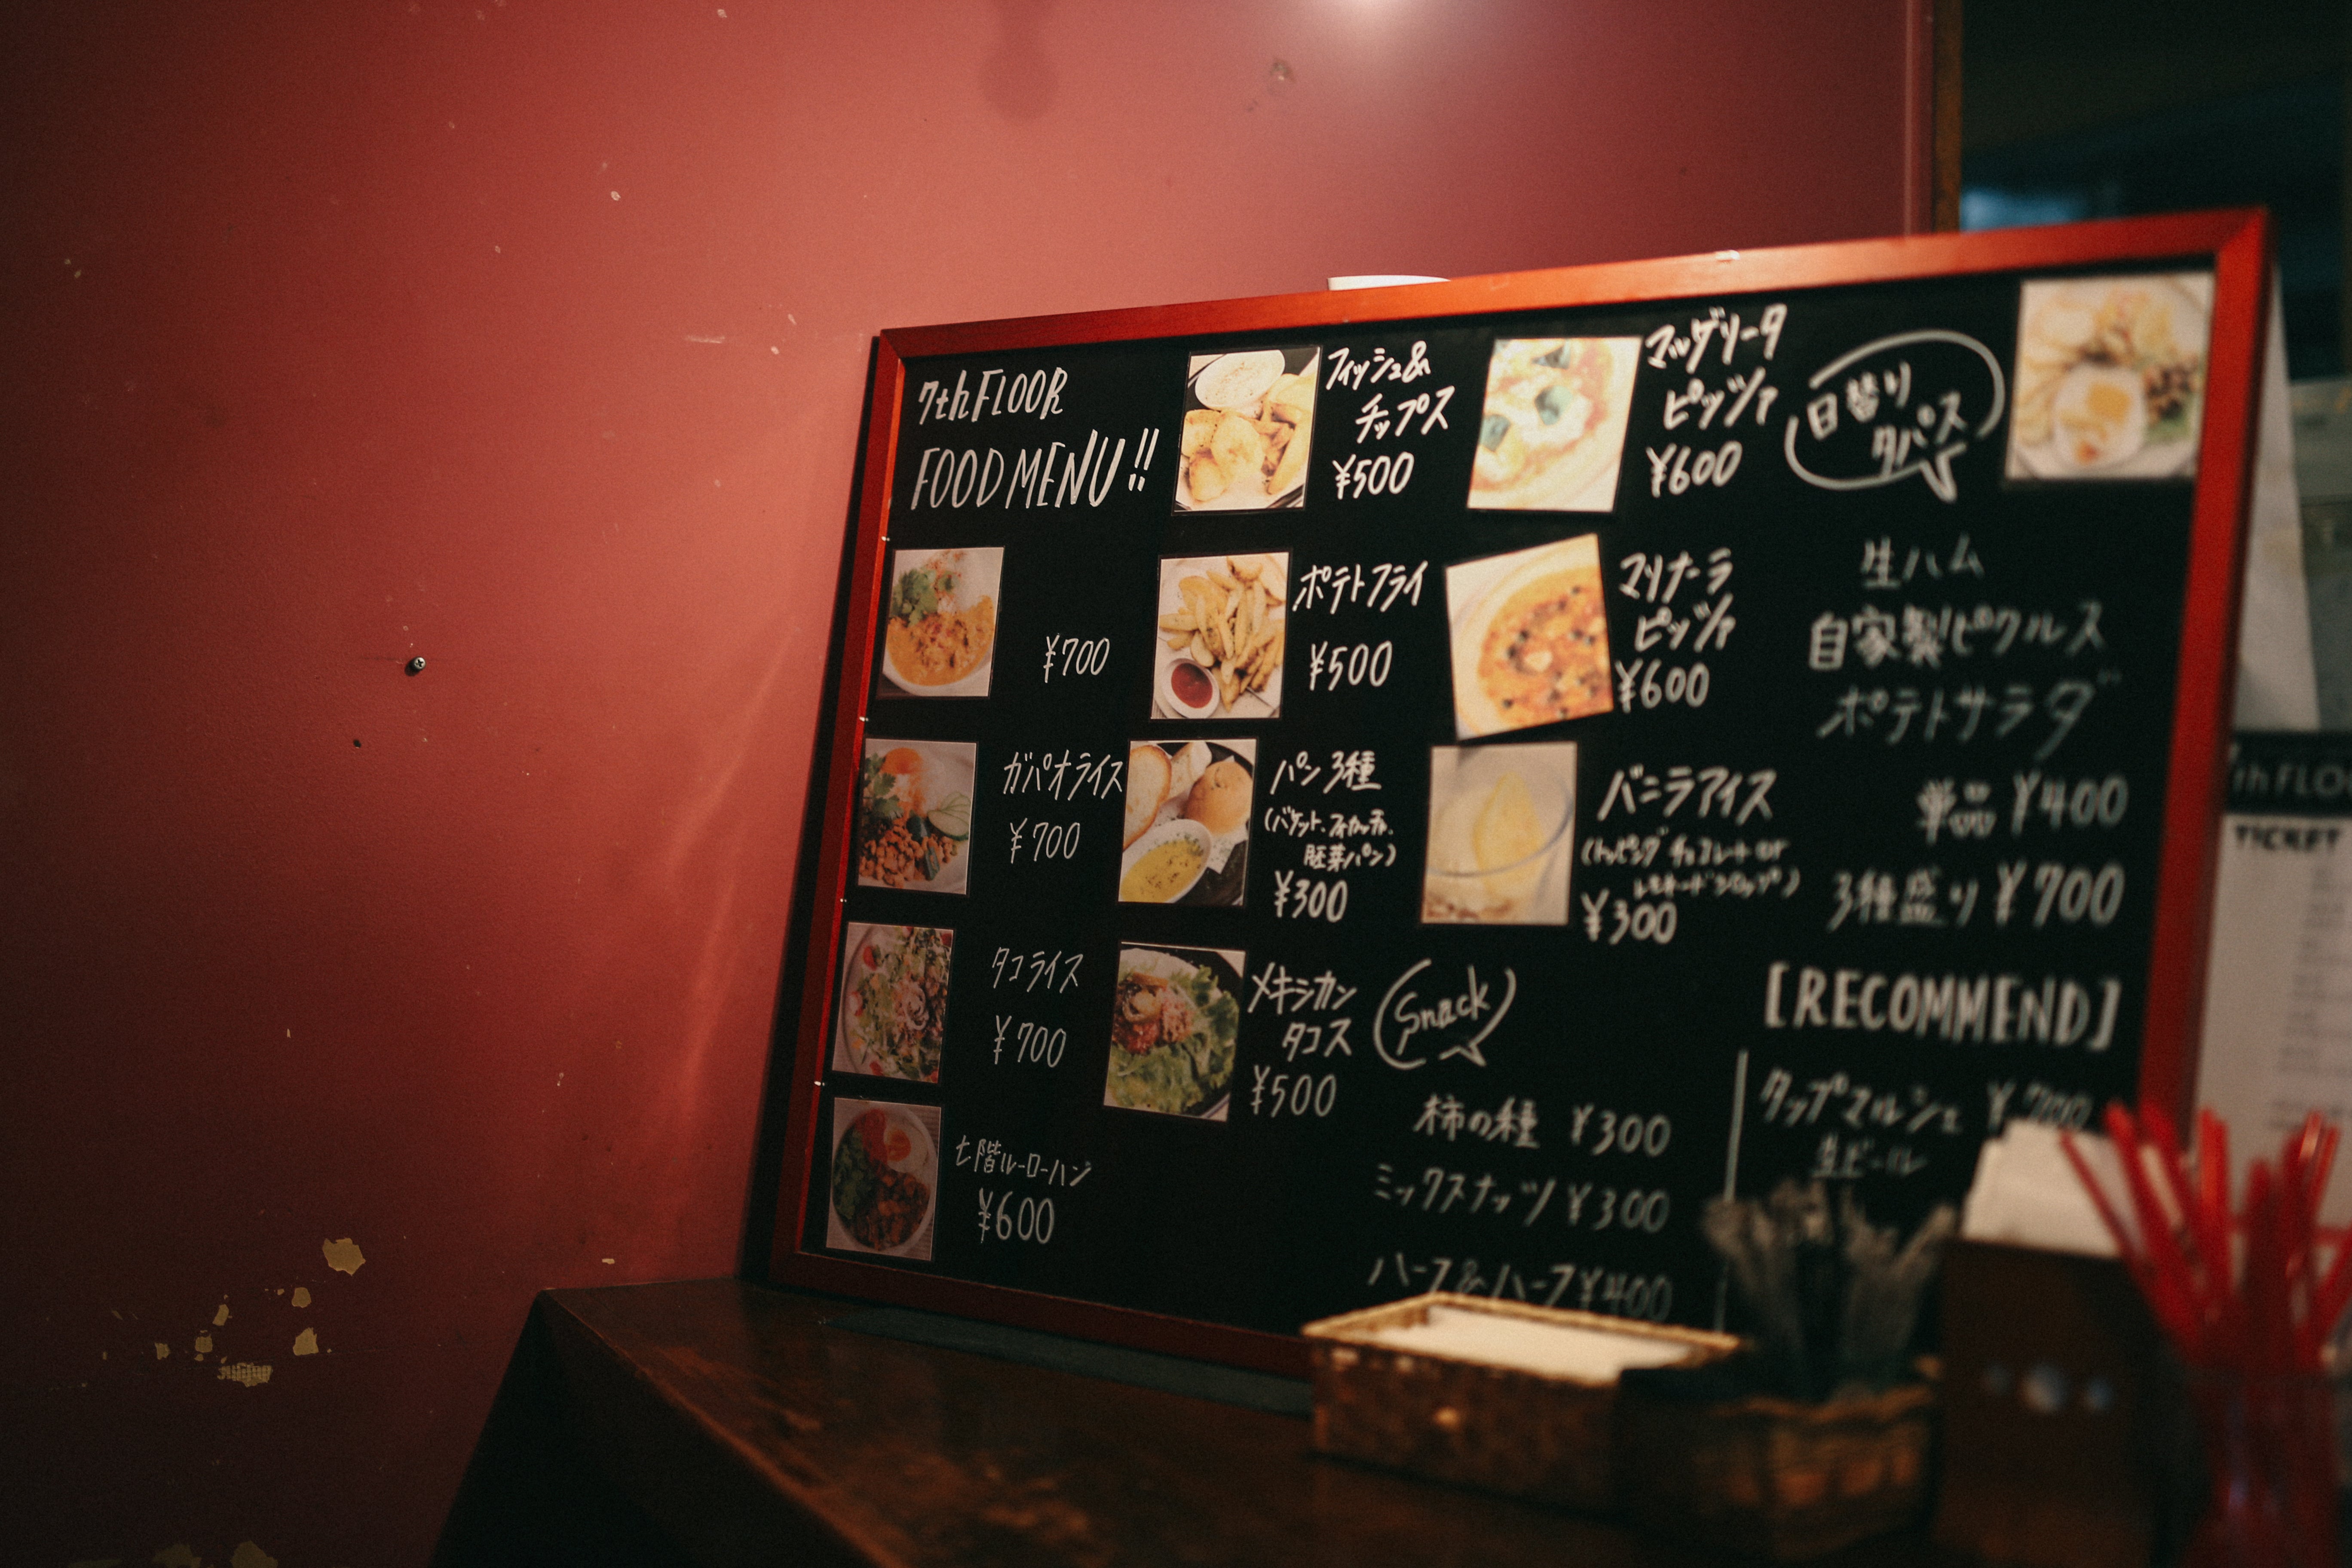 7th FLOOR
FOOD MENU!!
¥700
ガパオライス
¥700
タコライス
¥700
七階ルーローハン
¥600
フィッシュ&
チップス
¥500
ポテトフライ
¥500
パン3種
(バゲット、フォカッチャ、
胚芽パン)
¥300
メキシカン
タコス
¥500
マルゲリータ
ピッツァ
¥600
マリナーラ
ピッツァ
¥600
バニラアイス
(トッピング チョコレート or
¥300
Snack
柿の種 ¥300
ミックスナッツ ¥300
ハーフ&ハーフ ¥400
日替り
タパス
生ハム
自家製ピクルス
ポテトサラダ
単品 ¥400
3種盛り ¥700
[RECOMMEND]
タップマルシェ ¥700
生ビール
TICKET